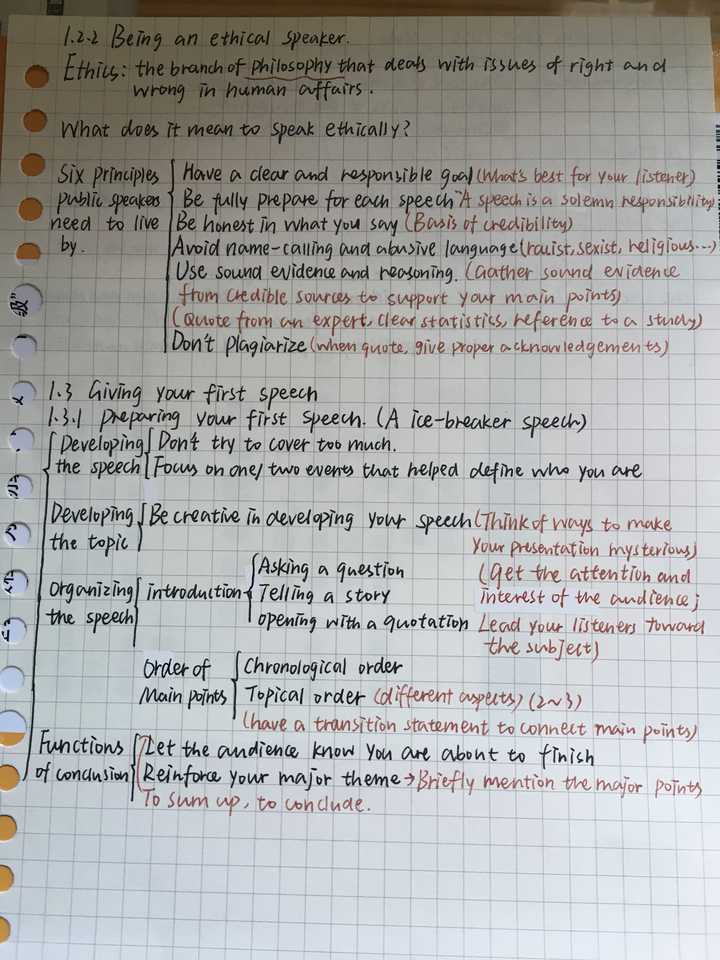 1.2.2 Being an ethical speaker.
Ethics: the branch of philosophy that deals with issues of right and
wrong in human affairs.
What does it mean to speak ethically?
Six principles public speakers need to live by.
Have a clear and responsible goal (What's best for your listener)
Be fully prepare for each speech "A speech is a solemn responsibility
Be honest in what you say (Basis of credibility)
Avoid name-calling and abusive language (racist, sexist, religious...)
Use sound evidence and reasoning. (Gather sound evidence
from credible sources to support your main points)
(Quote from an expert, clear statistics, reference to a study)
Don't plagiarize (when quote, give proper acknowledgements)
1.3 Giving your first speech
1.3.1 preparing your first speech. (A ice-breaker speech)
Developing the speech
Don't try to cover too much.
Focus on one/two events that helped define who you are
Developing the topic
Be creative in developing your speech (Think of ways to make
your presentation mysterious)
Organizing the speech
introduction
Asking a question
Telling a story
opening with a quotation
(get the attention and
interest of the audience;
Lead your listeners toward
the subject)
Order of Main points
Chronological order
Topical order (different aspects) (2~3)
(have a transition statement to connect main points)
Functions of conclusion
Let the audience know you are about to finish
Reinforce your major theme → Briefly mention the major points
To sum up, to conclude.